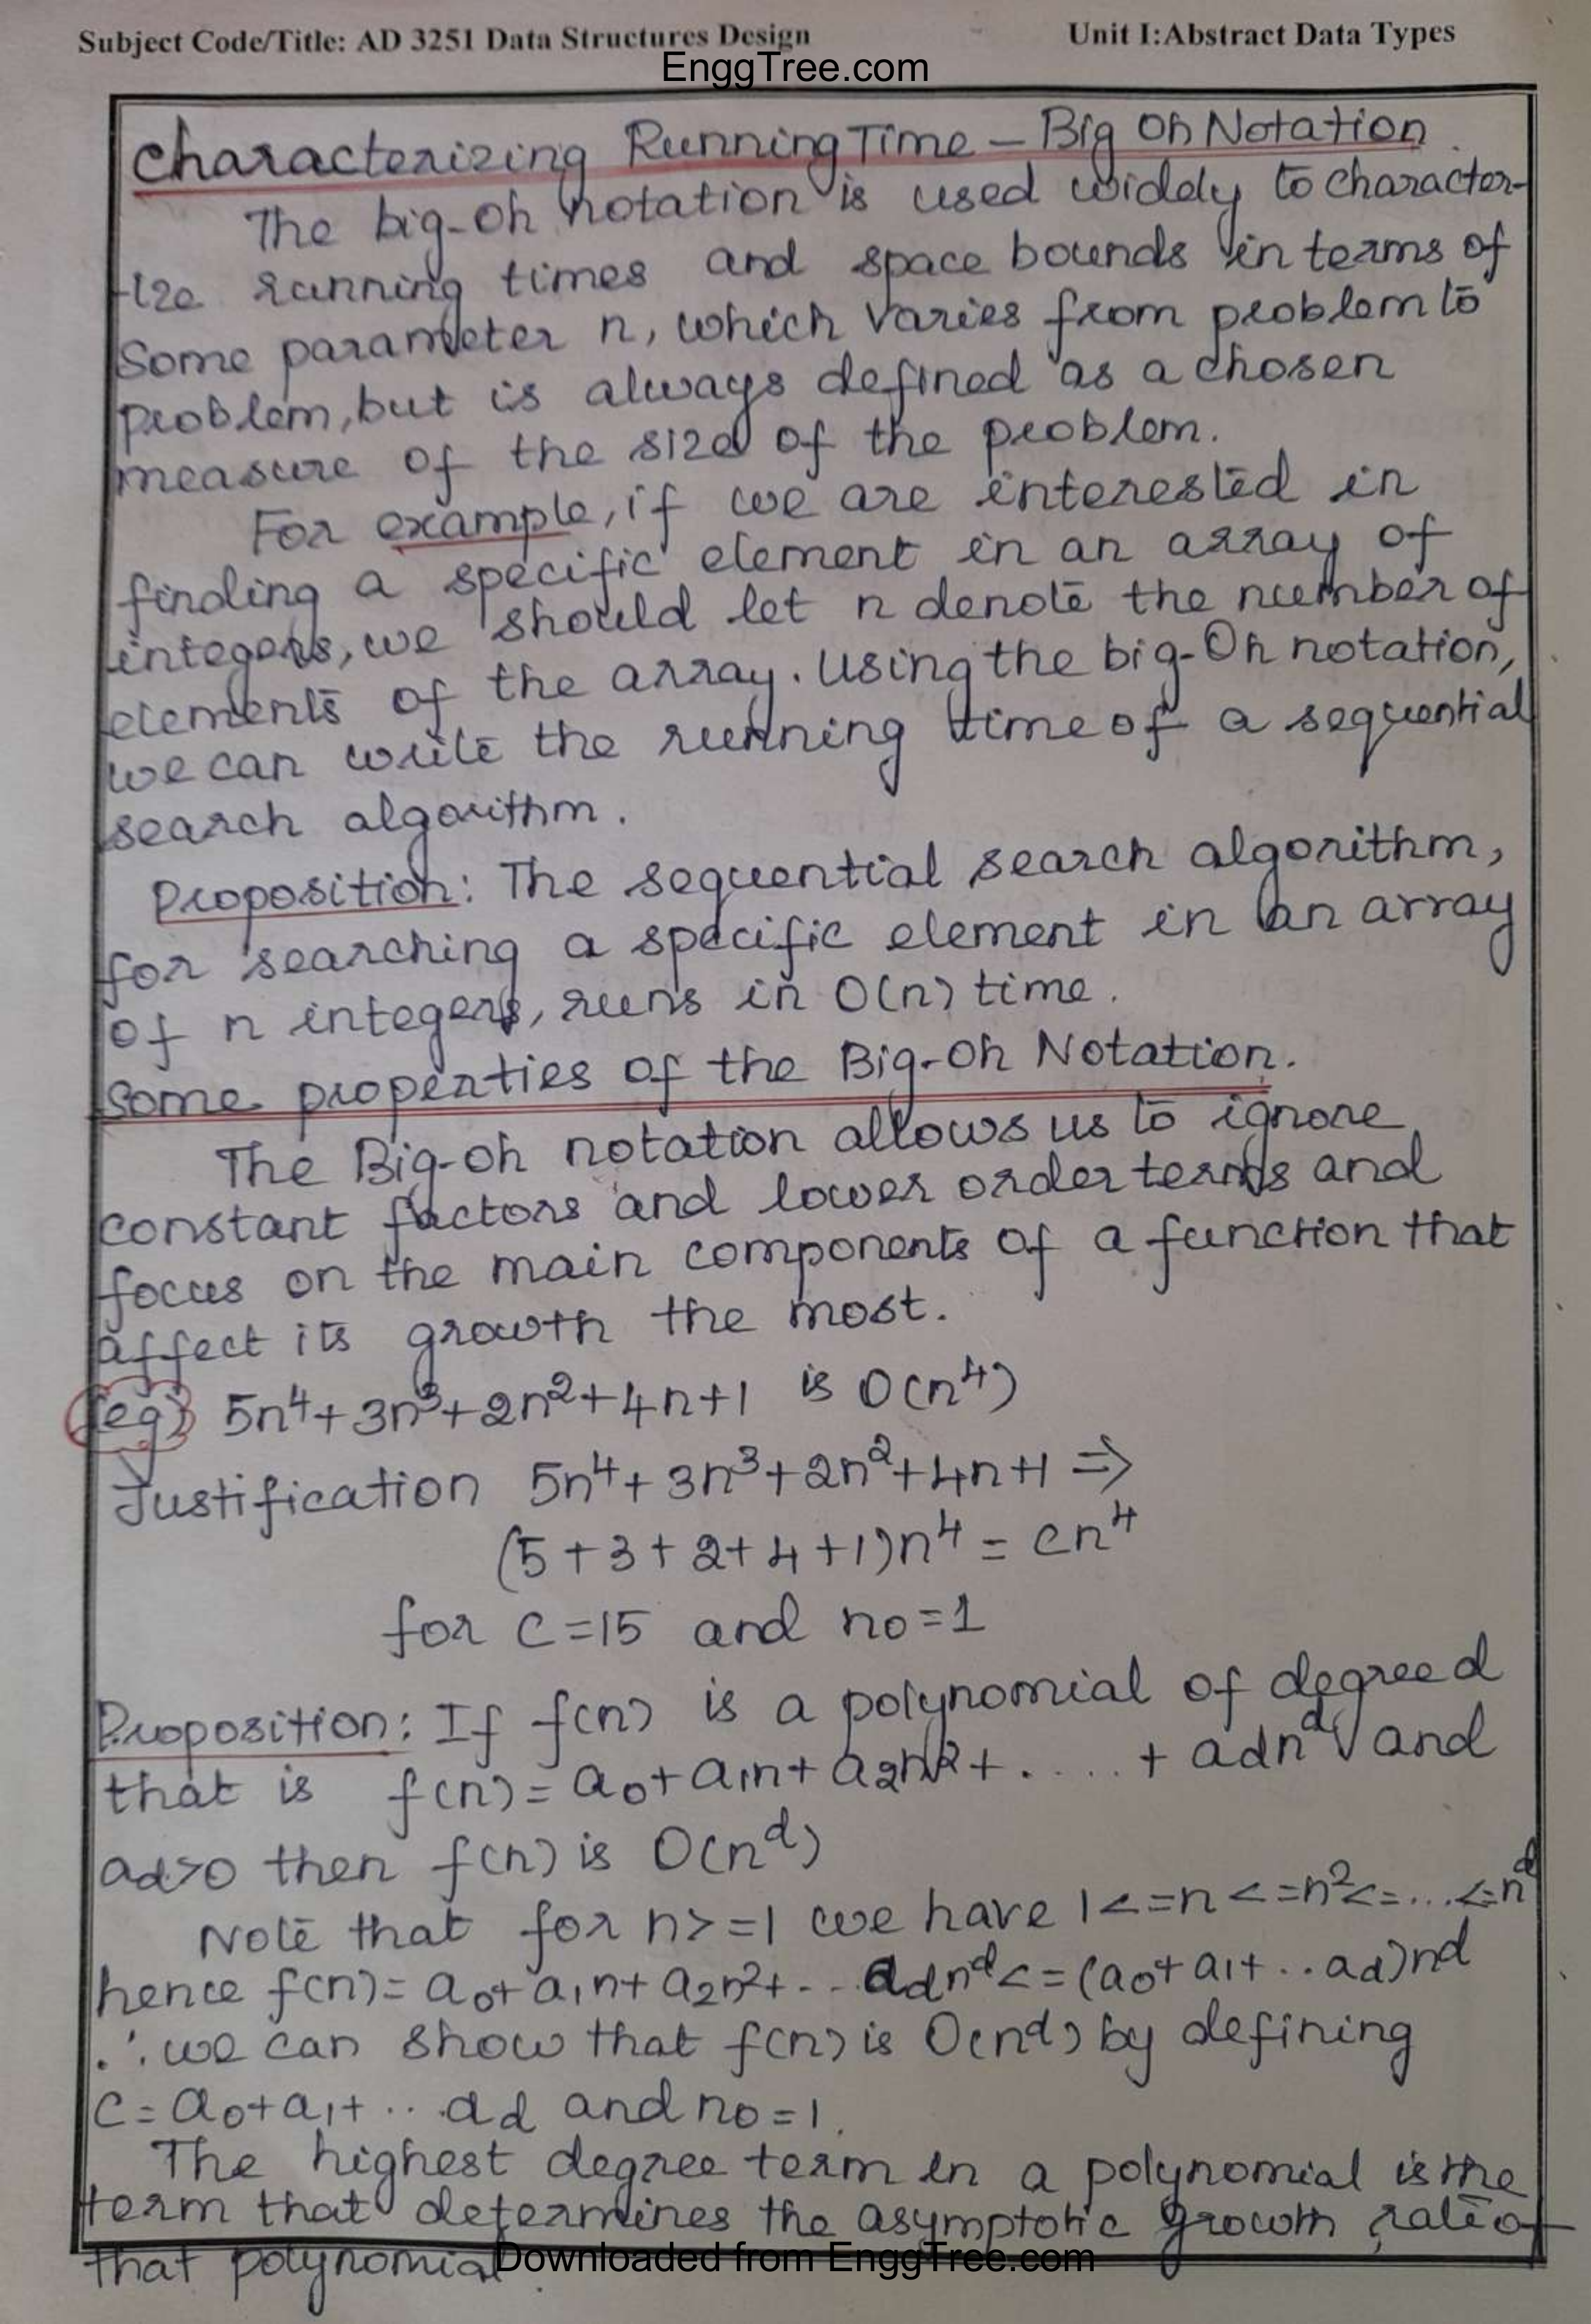 Subject Code/Title: AD 3251 Data Structures Design Unit I:Abstract Data Types
EnggTree.com
Characterizing Running Time – Big Oh Notation.
The big-Oh notation is used widely to character-
-ize running times and space bounds in terms of
some parameter n, which varies from problem to
problem, but is always defined as a chosen
measure of the size of the problem.
For example, if we are interested in
finding a specific element in an array of
integers, we should let n denote the number of
elements of the array. Using the big-Oh notation,
we can write the running time of a sequential
search algorithm.
Proposition: The sequential search algorithm,
for searching a specific element in an array
of n integers, runs in O(n) time.
Some properties of the Big-Oh Notation.
The Big-Oh notation allows us to ignore
constant factors and lower order terms and
focus on the main components of a function that
affect its growth the most.
(eg) 5n⁴+3n³+2n²+4n+1 is O(n⁴)
Justification 5n⁴+3n³+2n²+4n+1 ⇒
(5+3+2+4+1)n⁴ = cn⁴
for c=15 and n₀=1
Proposition: If f(n) is a polynomial of degree d
that is f(n)= a₀+a₁n+a₂n²+.....+ adnᵈ and
ad>0 then f(n) is O(nᵈ)
Note that for n>=1 we have 1<=n<=n²<=...<=nᵈ
hence f(n)= a₀+a₁n+a₂n²+... adnᵈ<=(a₀+a₁+..ad)nᵈ
∴ we can show that f(n) is O(nᵈ) by defining
c=a₀+a₁+... ad and n₀=1.
The highest degree term in a polynomial is the
term that determines the asymptotic growth rate of
that polynomial.
Downloaded from EnggTree.com